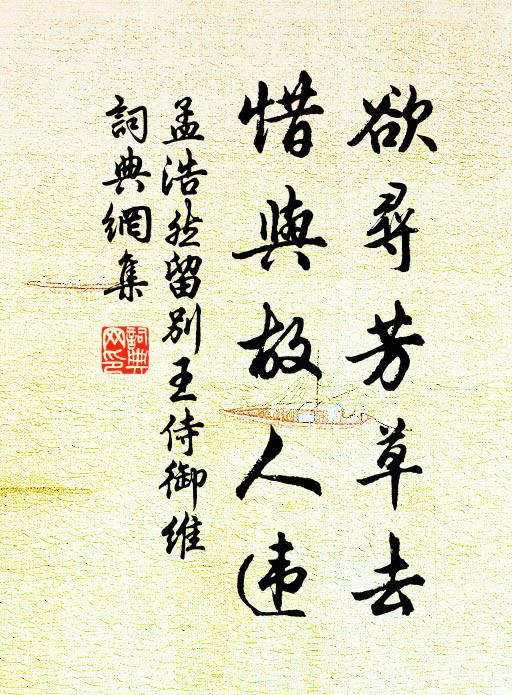 欲尋芳草去
惜與故人違
孟浩然留別王侍御維
詞典網集
詞典網印